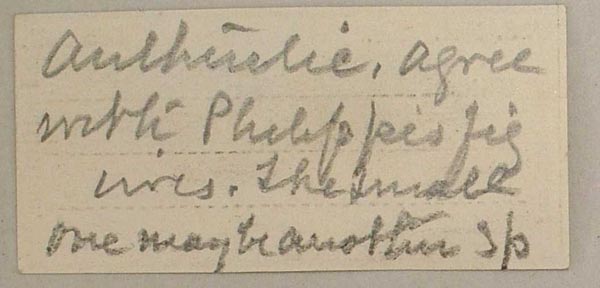 Authentic, agree
with Philippis fig
ures. The small
one maybe another sp